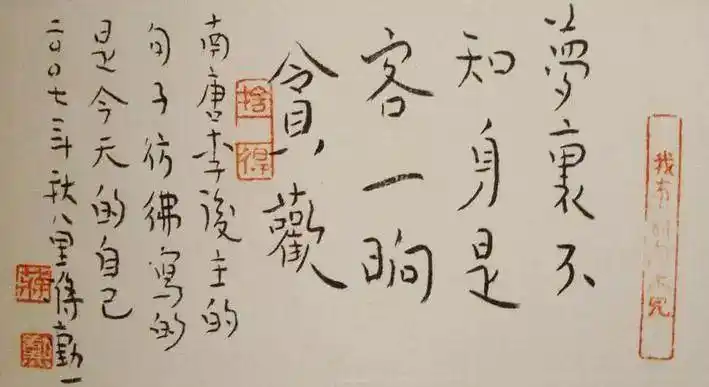 我有
夢裏不
知身是
客一晌
貪歡
捨
得
南唐李後主的
句子彷彿寫的
是今天的自己
二〇〇七年秋八里蔣勳
蔣
勳